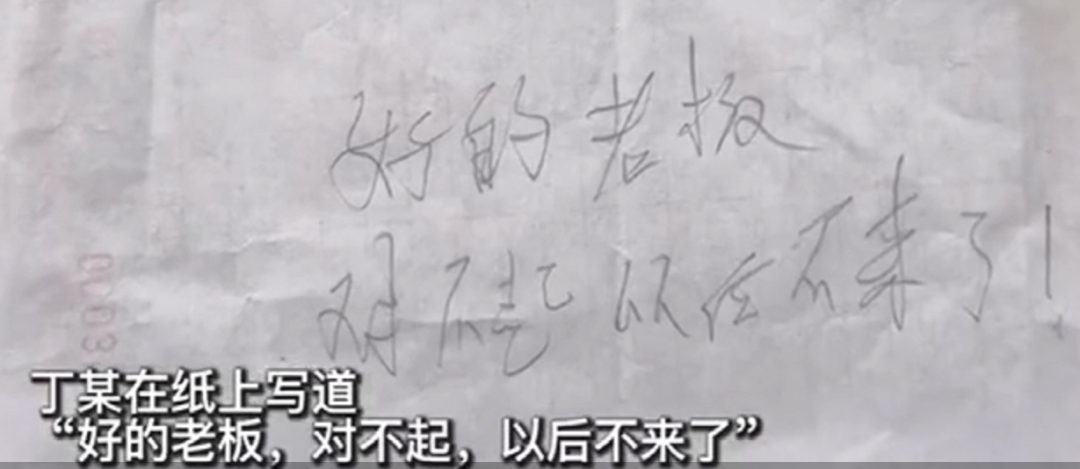 好的老板
对不起以后不来了!
丁某在纸上写道
“好的老板，对不起，以后不来了”